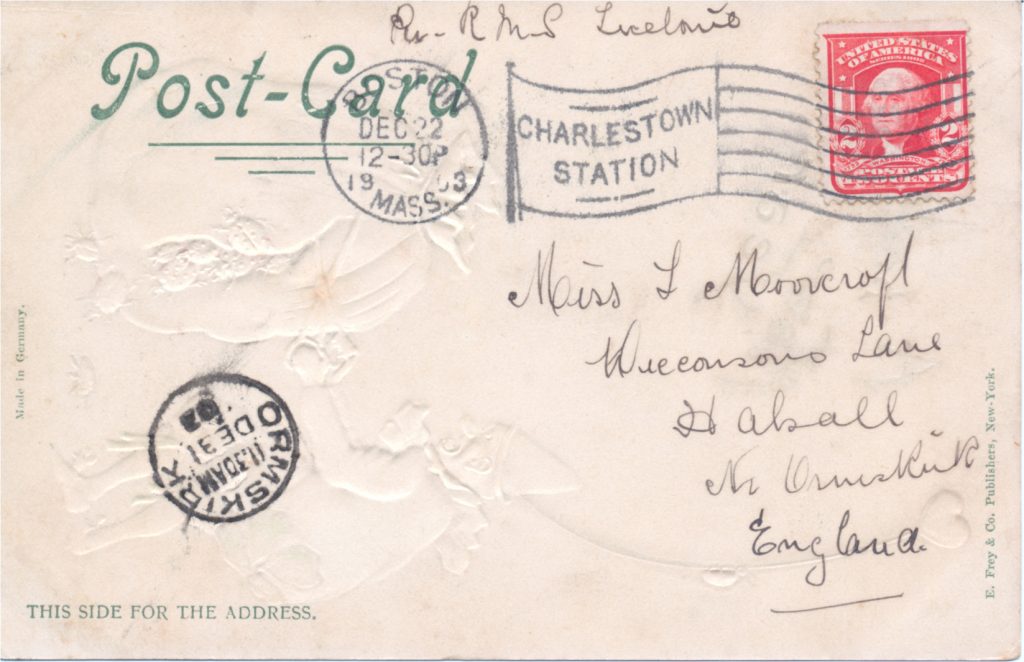 Per R M S
Post-Card
BOSTON
DEC 22
12-30P
19 03
MASS.
CHARLESTOWN
STATION
UNITED STATES
OF AMERICA
SERIES 1902
2 2
WASHINGTON
POSTAGE
TWO CENTS
Miss L Moorcroft
Wicconsons Lane
Halsall
Nr Ormskirk
England.
ORMSKIRK
11.30AM
DE 31
03
Made in Germany.
E. Frey & Co. Publishers, New-York.
THIS SIDE FOR THE ADDRESS.